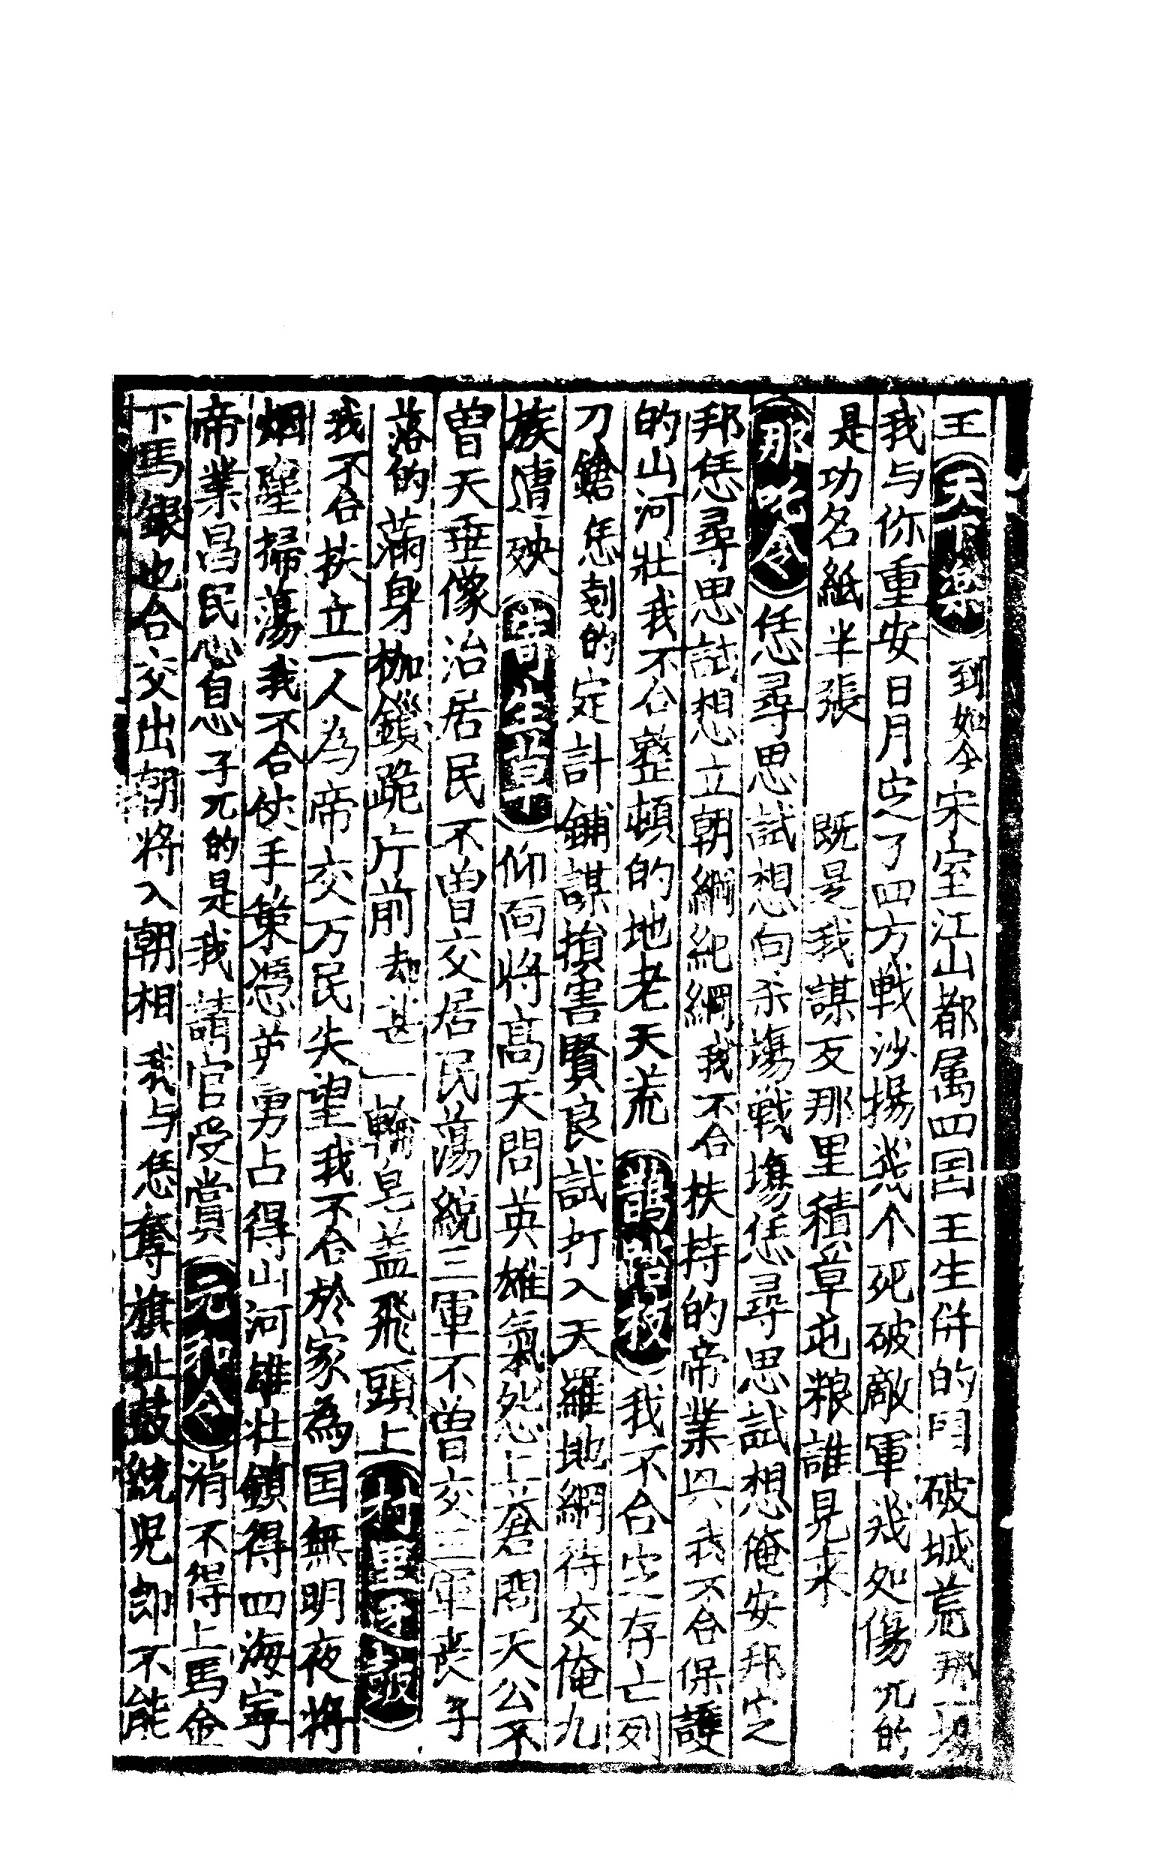 王天下樂到如今宋室江山都属四国王生併的閗破城荒那一埸
我与你重安日月㝎了四方戦沙揚㦲个死破敵軍㦲処傷兀的
是功名紙半張　既是我謀反那里積草屯粮誰見来
那吒令恁尋思試想向杀塲戦塲恁尋思試想俺安邦㝎
邦恁尋思試想立朝綱紀綱我不合扶持的帝業兴我不合保護
的山河壮我不合整頓的地老天荒鵲踏枝我不合㝎存亡列
刀鎗恁刻的定計鋪謀損害賢良試打入天羅地網待交俺九
族遭殃寄生草仰面将高天問英雄氣怨上蒼問天公不
曾天垂像治居民不曾交居民蕩統三軍不曾交三軍丧子
落的滿身枷鎖跪厅前却甚一輪皂盖飛頭上村里迓鼓
我不合扶立一人為帝交万民失望我不合於家為国無明夜将
烟塵掃蕩我不合仗手策憑英勇占得山河雄壮鎮得四海寧
帝業昌民心息子兀的是我請官受賞元和令消不得上馬金
下馬銀也合交出朝将入朝相我与恁奪旗扯鼓統児郎不能